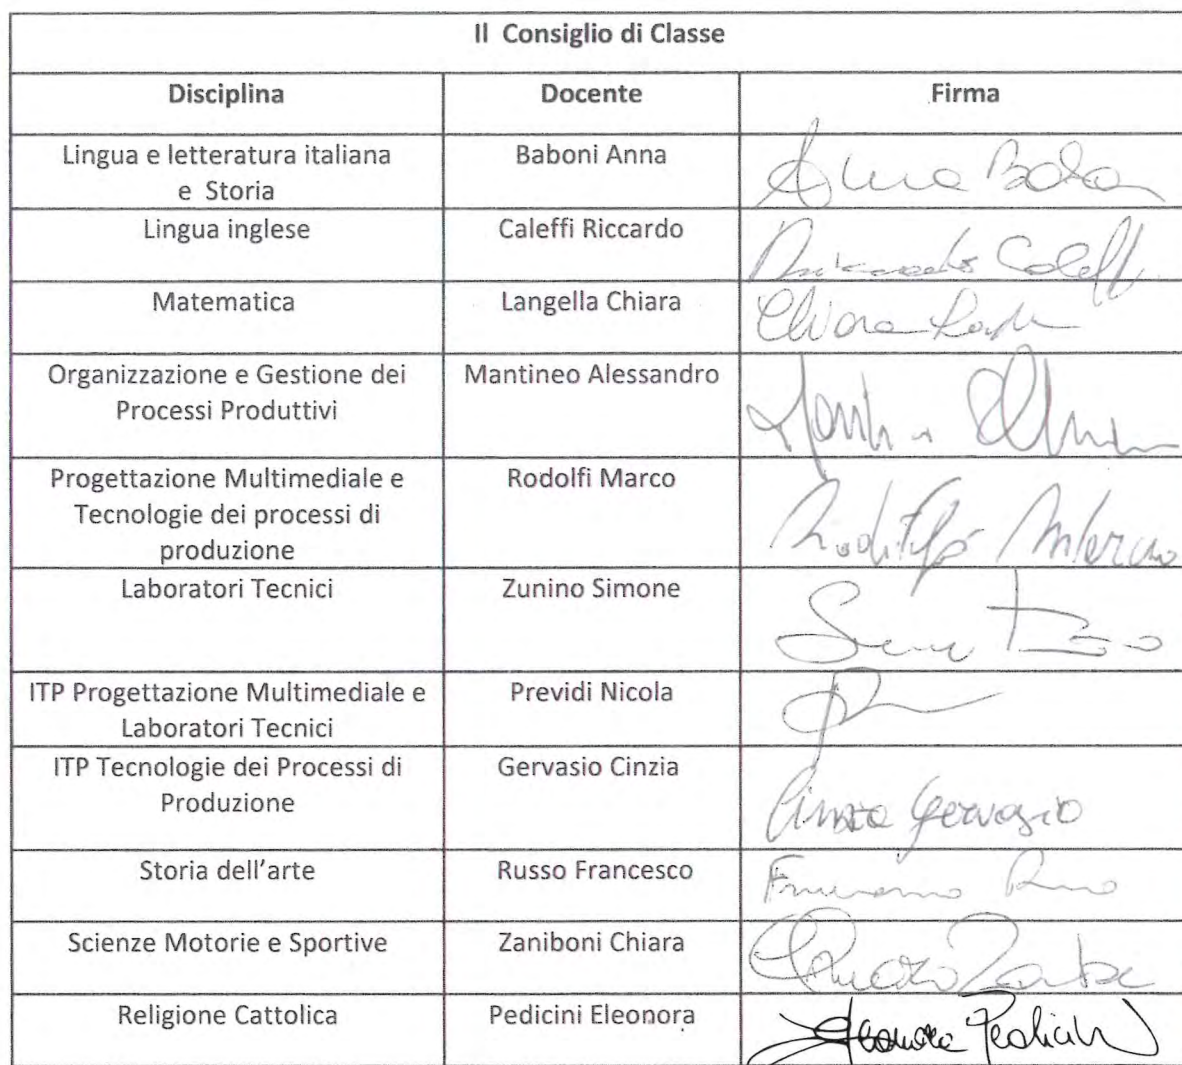 Il Consiglio di Classe
Disciplina Docente Firma
Lingua e letteratura italiana
e Storia
Baboni Anna
Anna Babon
Lingua inglese
Caleffi Riccardo
Riccardo Caleffi
Matematica
Langella Chiara
Chiara
Organizzazione e Gestione dei
Processi Produttivi
Mantineo Alessandro
Progettazione Multimediale e
Tecnologie dei processi di
produzione
Rodolfi Marco
Rodolfi Marco
Laboratori Tecnici
Zunino Simone
ITP Progettazione Multimediale e
Laboratori Tecnici
Previdi Nicola
ITP Tecnologie dei Processi di
Produzione
Gervasio Cinzia
Cinzia Gervasio
Storia dell'arte
Russo Francesco
Francesco Russo
Scienze Motorie e Sportive
Zaniboni Chiara
Religione Cattolica
Pedicini Eleonora
Eleonora Pedicini